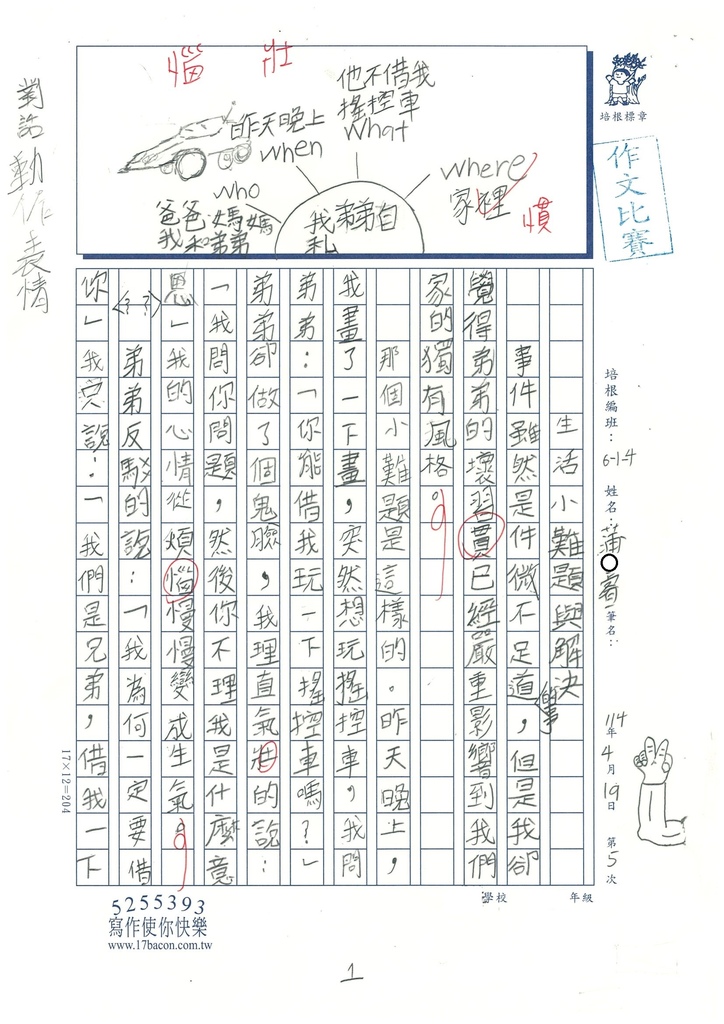 惱 壯
他不借我
搖控車
what
昨天晚上
when
where
家裡
慣
who
爸爸媽媽
我和弟弟
我弟弟自
私
對話動作表情
培根標章
作文比賽
培根編班:6-1-4 姓名:蒲○睿 筆名:
114年4月19日 第5次
生活小難題與解決
事件雖然是件微不足道的事,但是我卻
覺得弟弟的壞習貫已經嚴重影響到我們
家的獨有風格。
那個小難題是這樣的。昨天晚上,
我畫了一下畫,突然想玩搖控車,我問
弟弟:「你能借我玩一下搖控車嗎?」
弟弟卻做了個鬼臉,我理直氣壯的說:
「我問你問題,然後你不理我是什麼意
思」我的心情從煩惱慢慢變成生氣。
弟弟反駁的說:「我為何一定要借
你」(??)我只說:「我們是兄弟,借我一下
17×12=204
學校 年級
5255393
寫作使你快樂
www.17bacon.com.tw
1